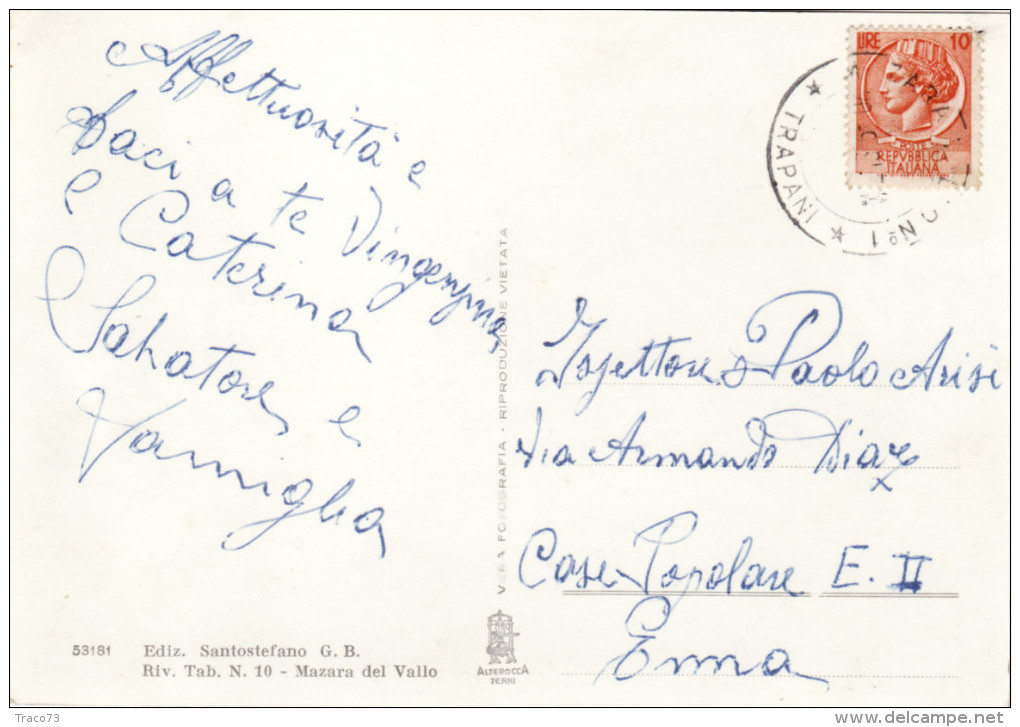 Affettuosità e
baci a te Vingenzina,
e Caterina
Salvatore e
Famiglia
53181 Ediz. Santostefano G. B.
Riv. Tab. N. 10 - Mazara del Vallo
VERA FOTOGRAFIA - RIPRODUZIONE VIETATA
ALTEROCCA
TERNI
LIRE 10
POSTE
REPVBBLICA
ITALIANA
* TRAPANI *
No 1
Ispettore Paolo Arisi
Via Armando Diaz
Case Popolare E. II
Enna
Traco73
www.delcampe.net